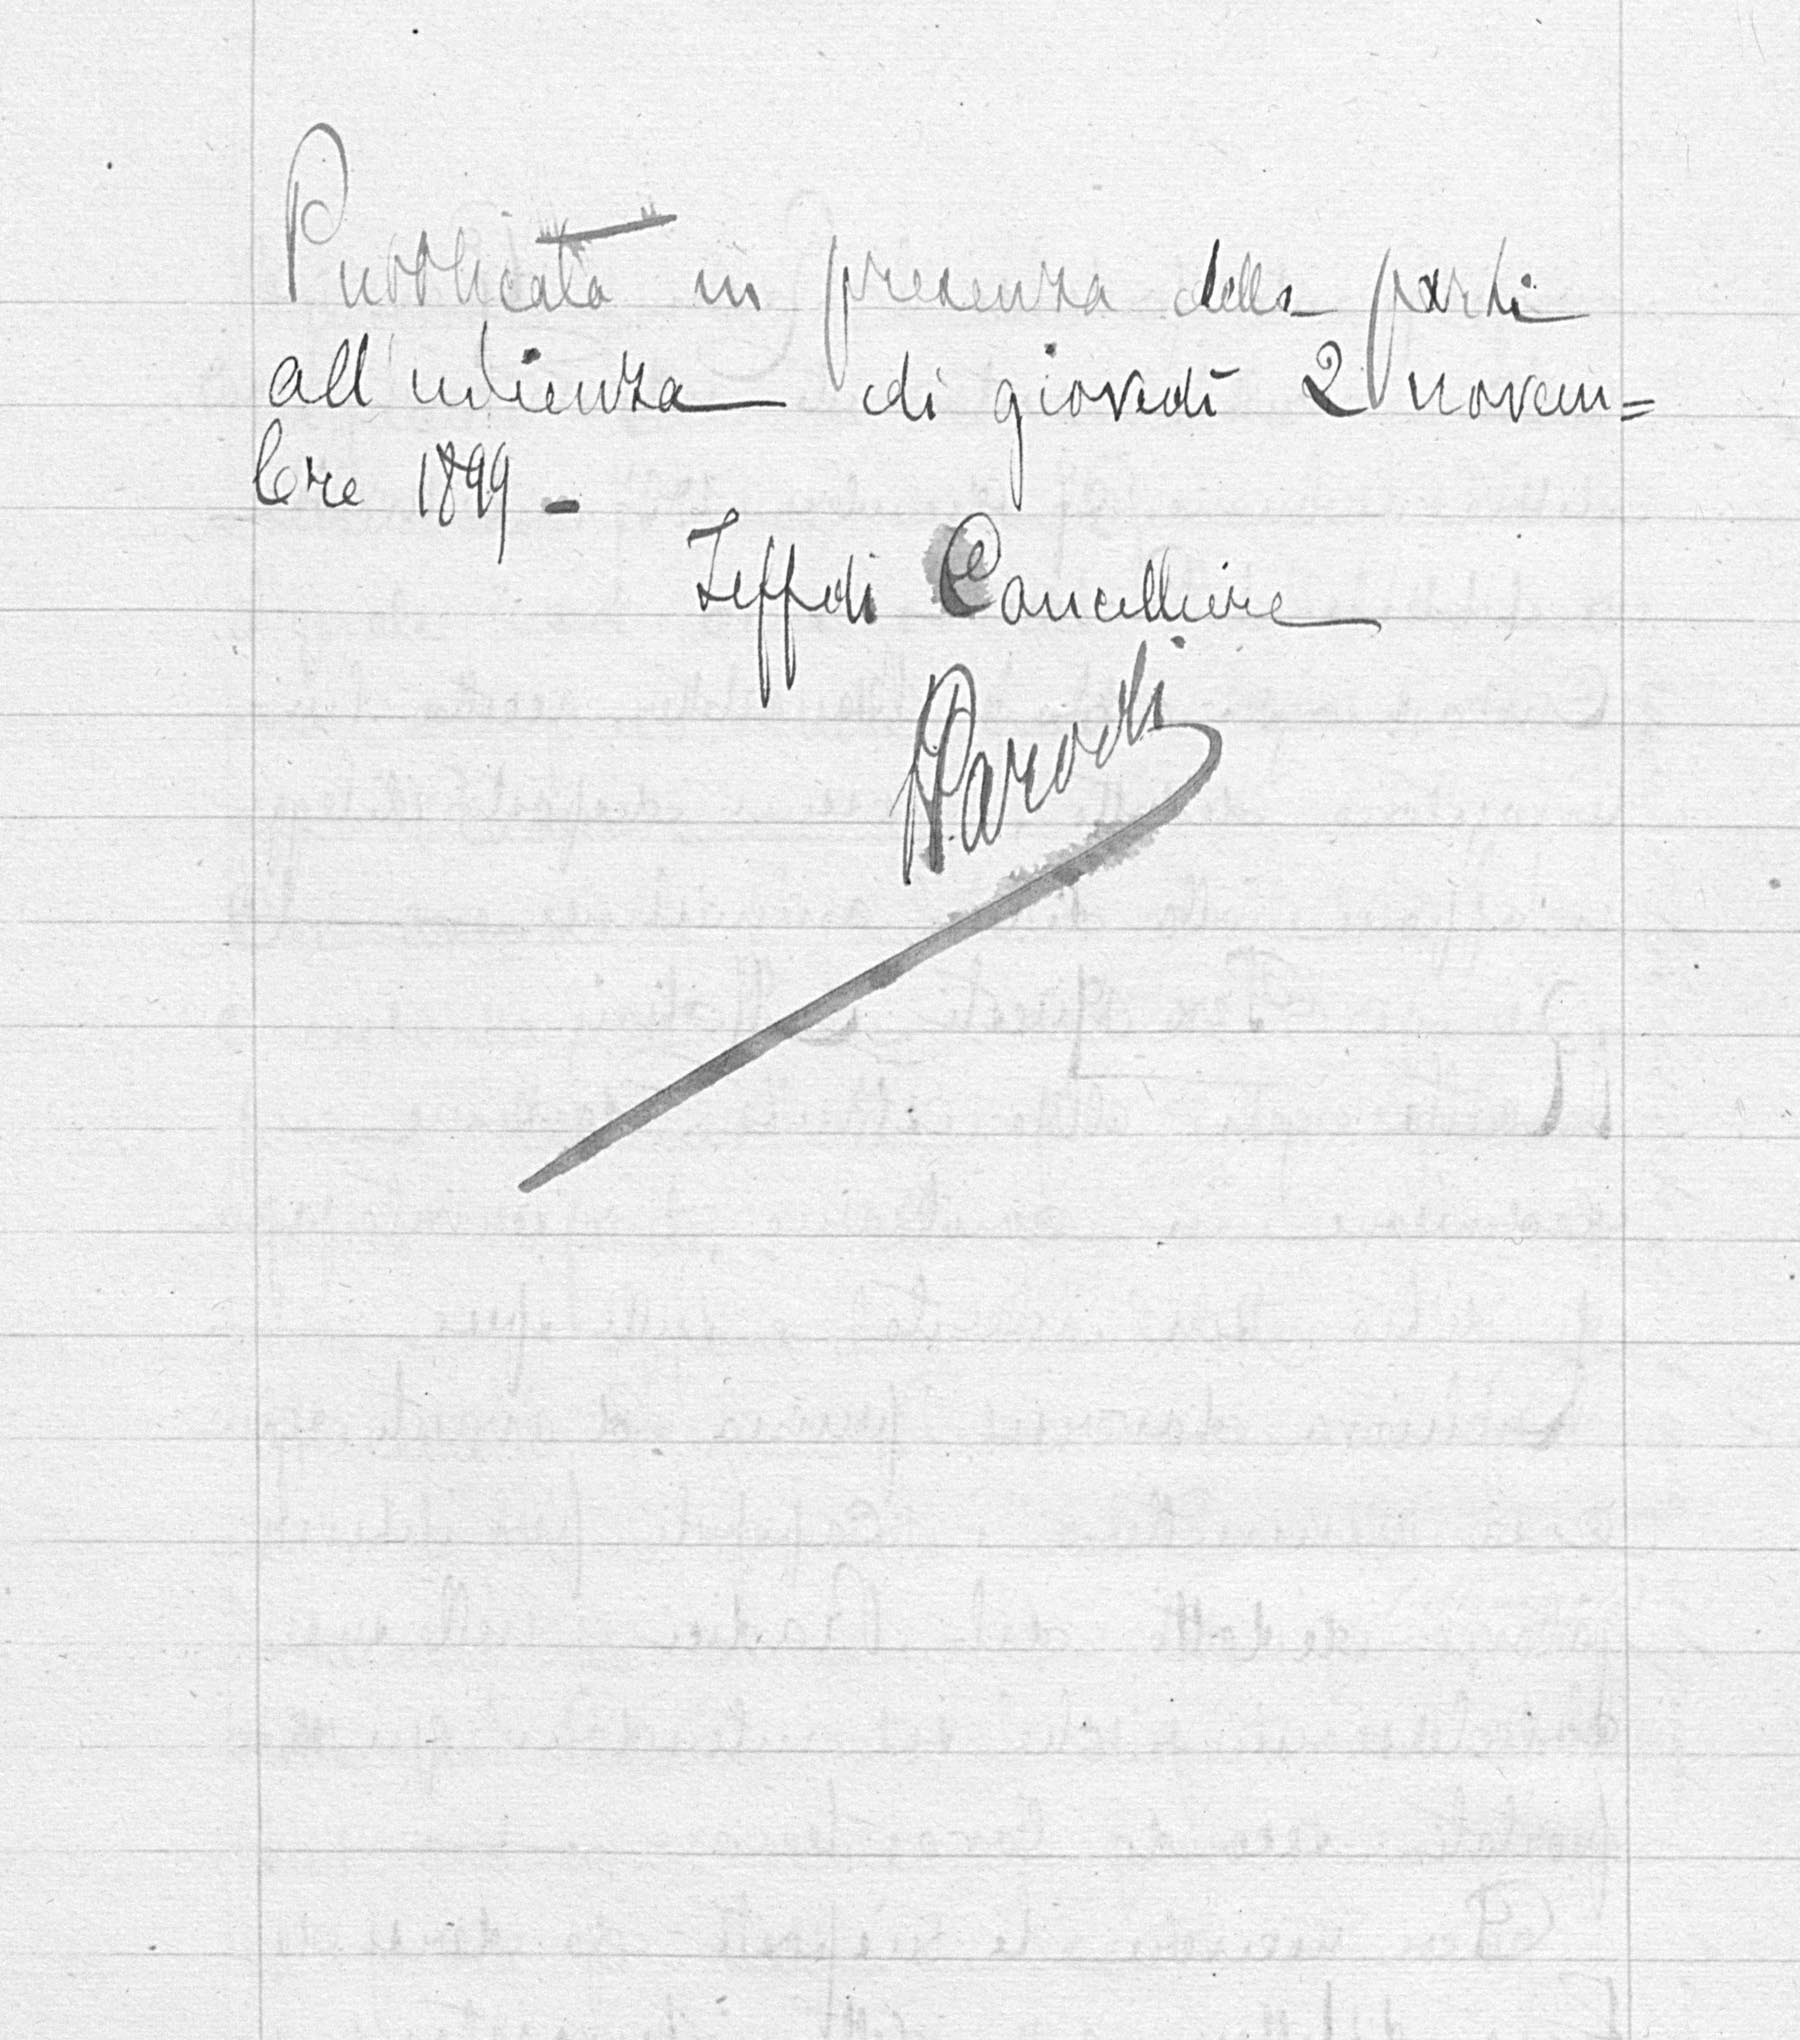 Pubblicata in presenza delle parti
all'udienza di giovedì 2 novem=
bre 1899 -
Il ff di Cancelliere
Parodi